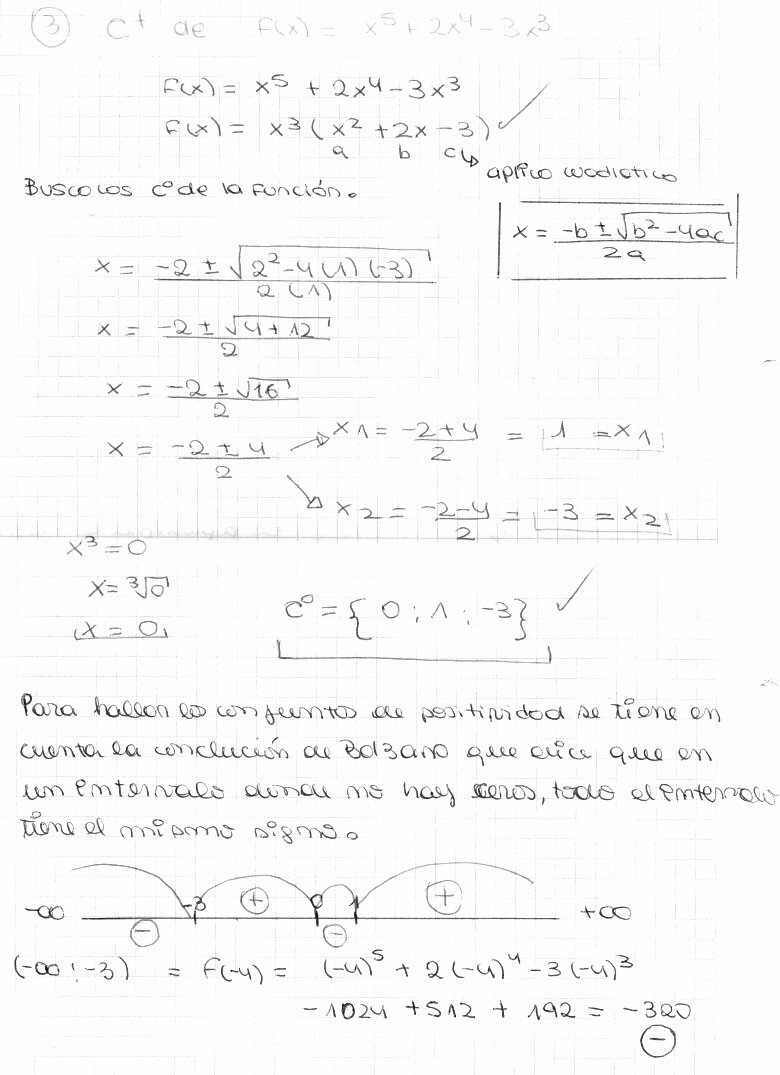 ③ C⁺ de f(x) = x⁵ + 2x⁴ - 3x³
F(x) = x⁵ + 2x⁴ - 3x³
F(x) = x³ (x² + 2x - 3) ✓
a b c ↳ aplico cuadrática
Busco los c⁰ de la función.
x = (-b ± √(b² - 4ac)) / 2a
x = (-2 ± √(2² - 4(1)(-3))) / 2(1)
x = (-2 ± √(4 + 12)) / 2
x = (-2 ± √16) / 2
x = (-2 ± 4) / 2 → x1 = (-2 + 4) / 2 = 1 = x1
x2 = (-2 - 4) / 2 = -3 = x2
x³ = 0
x = ³√0
x = 0
c⁰ = { 0 ; 1 ; -3 } ✓
Para hallar los conjuntos de positividad se tiene en
cuenta la conclución de Bolzano que dice que en
un intervalo donde no hay ceros, todo el intervalo
tiene el mismo signo.
-∞ - -3 + 0 - 1 + +∞
(-∞ ; -3) = F(-4) = (-4)⁵ + 2(-4)⁴ - 3(-4)³
-1024 + 512 + 192 = -320
-